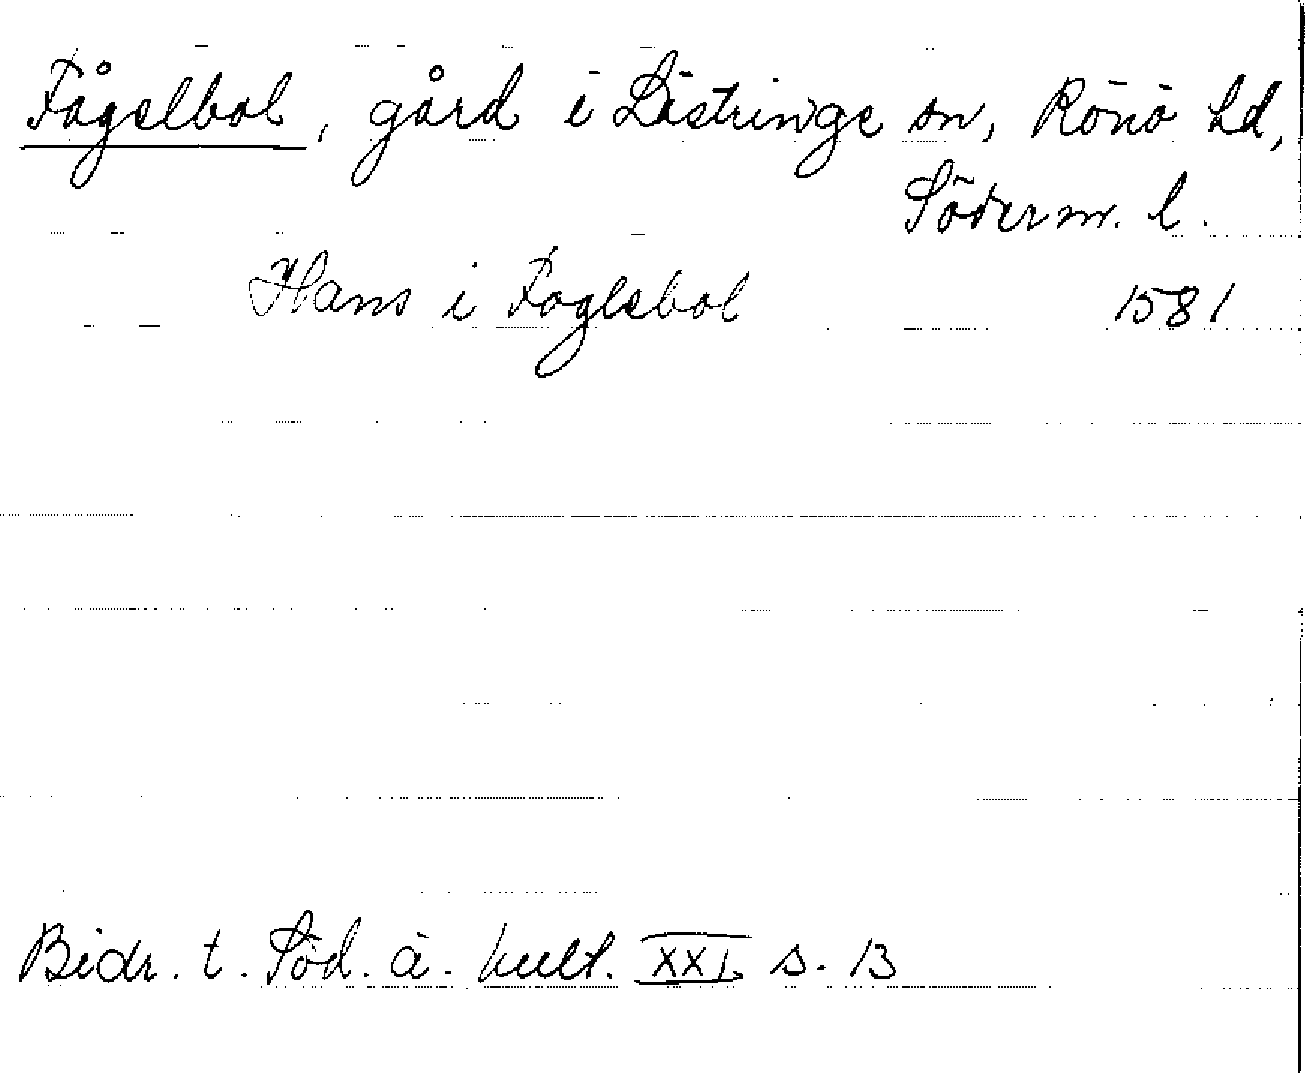 Fågelbol, gård i Lästringe sn, Rönö hd,
Söderm. l.
Hans i Foglebol 1581
Bidr. t. Söd. ä. kult. XXI s. 13